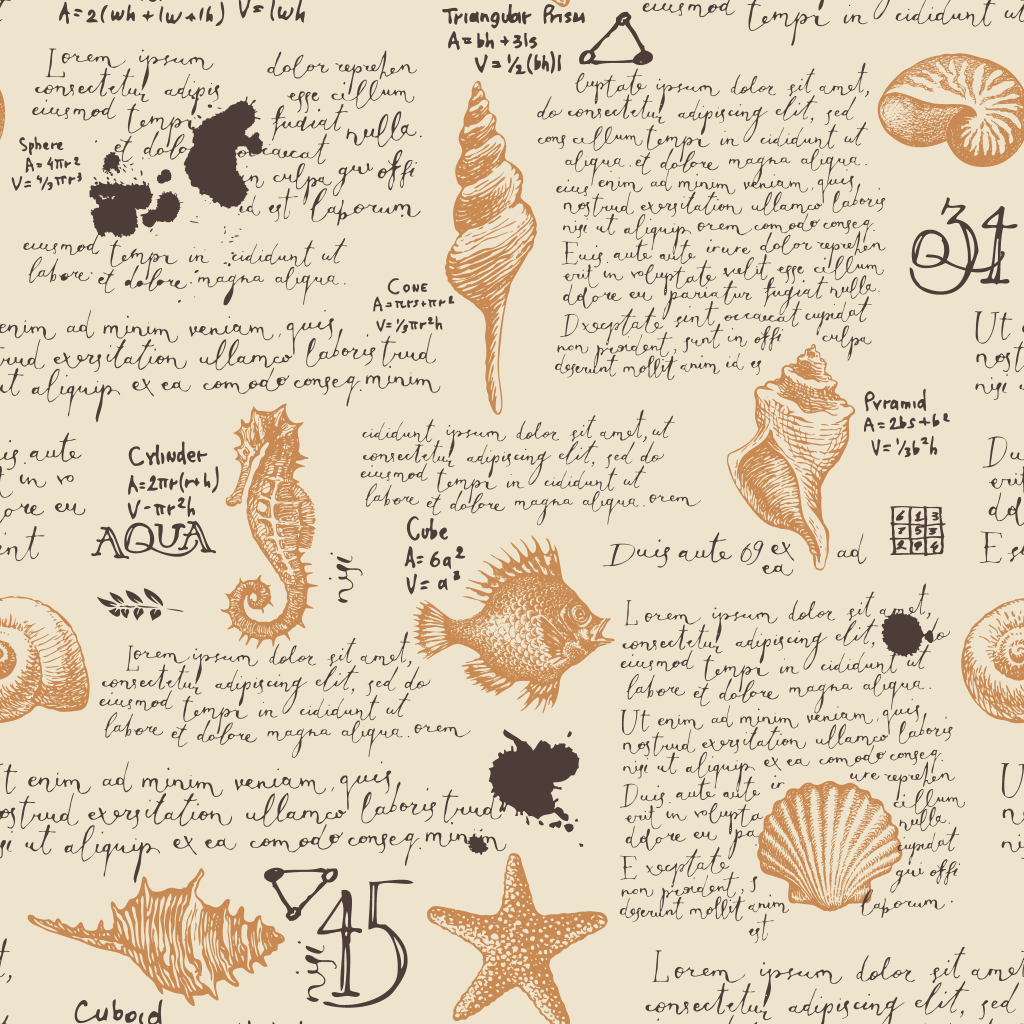 A=2(wh+lw+lh) V=lwh
Triangular Prism
A=bh+3ls
V=½(bh)l
eiusmod tempi in cididunt ut
Lorem ipsum
consectetur adipis
eiusmod tempi
et dolo
dolor reprehen
esse cillum
fugiat nulla.
occaecat
in culpa qui offi
id est laporum
Sphere
A=4πr²
V=4/3πr³
eiusmod tempi in cididunt ut
labore et dolore magna aliqua.
Cone
A=πrs+πr²
V=⅓πr²h
enim ad minim veniam, quis,
trud exersitation ullamco laboris trud
ut aliquip ex ea comodo conseq. minim
luptate ipsum dolor sit amet,
do consectetur adipiscing elit, sed
cons cillum tempi in cididunt ut
aliqua. et dolore magna aliqua.
eius enim ad minim veniam, quis,
nostrud exersitation ullamco laboris
nisi ut aliquip orem comodo conseq.
Euis aute aute irure dolor reprehen
erit in voluptate velit esse cillum
dolore eu pariatur fugiat nulla.
Dxceptate sint occaecat cupidat
non proident, sunt in offi culpa
deserunt mollit anim id es
34
Ut
nost
nisi
is aute
t in vo
ore eu
ent
Cylinder
A=2πr(r+h)
V-πr²h
AQUA
nisi
cididunt ipsum dolor sit amet, ut
consectetur adipiscing elit, sed do
eiusmod tempi in cididunt ut
labore et dolore magna aliqua. orem
Cube
A=6a²
V=a³
Pyramid
A=2bs+b²
V=⅓b²h
6 1 3
7 5 3
2 9 4
Du
erit
dol
Duis aute 69 ex ad
ea
Lorem ipsum dolor sit amet,
consectetur adipiscing elit, do
eiusmod tempi in cididunt ut
labore et dolore magna aliqua.
Lorem ipsum dolor sit amet,
consectetur adipiscing elit, sed do
eiusmod tempi in cididunt ut
labore et dolore magna aliqua. orem
t enim ad minim veniam, quis,
nostrud exersitation ullamco laboris trud
si ut aliquip ex ea comodo conseq. minim
Ut enim ad minim veniam, quis,
nostrud exersitation ullamco laboris
nisi ut aliquip ex ea comodo conseq.
Duis aute aute ir ure reprehen
erit in volupta cillum
dolore eu pa nulla.
E xceptate cupidat
non proident, s qui offi
deserunt mollit anim laborum.
est
U
no
ni
45
nisi
Cuboid
Lorem ipsum dolor sit amet
consectetur adipiscing elit, sed